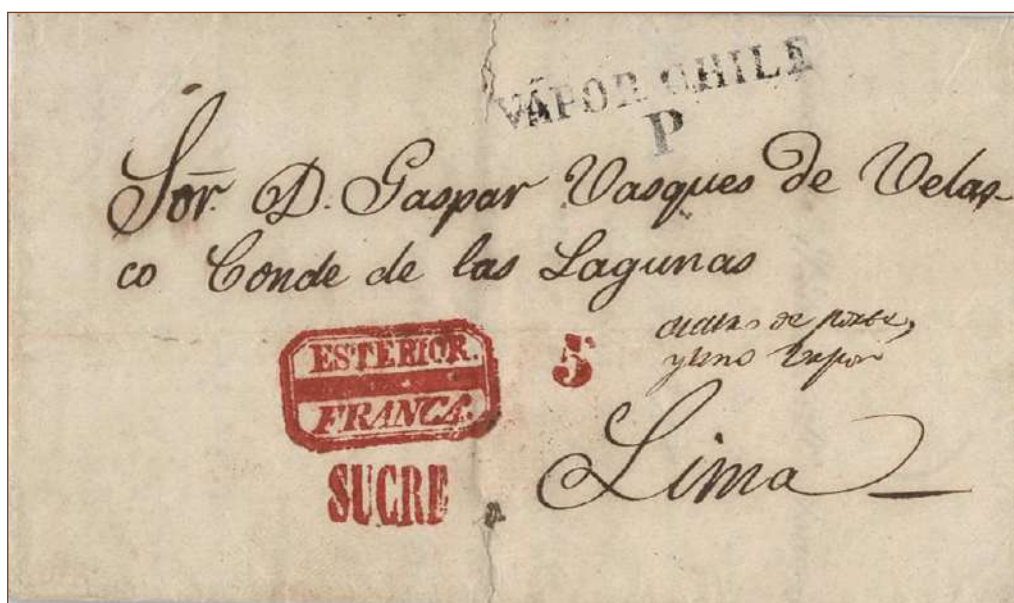 VAPOR CHILE
P
Sor. D. Gaspar Vasques de Velas-
co Conde de las Lagunas
ESTERIOR.
FRANCA.
5
de
y uno vapor
SUCRE
Lima